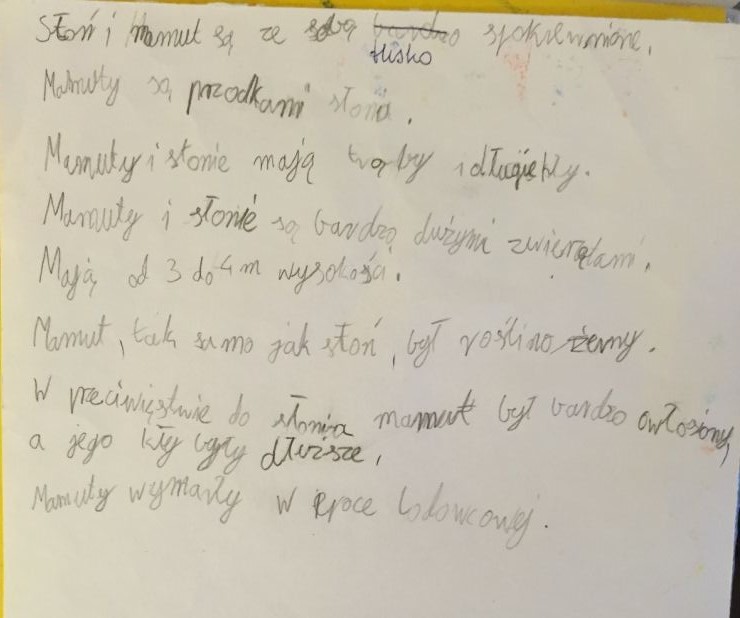 Słoń i mamut są ze sobą bardzo spokrewnione.
blisko
Mamuty są przodkami słonia.
Mamuty i słonie mają trąby i długie kły.
Mamuty i słonie są bardzo dużymi zwierzętami.
Mają od 3 do 4 m wysokości.
Mamut, tak samo jak słoń, był roślinożerny.
W preciwięstwie do słonia mamut był bardzo owłosiony,
a jego kły były dłuższe.
Mamuty wymarły w epoce lodowcowej.